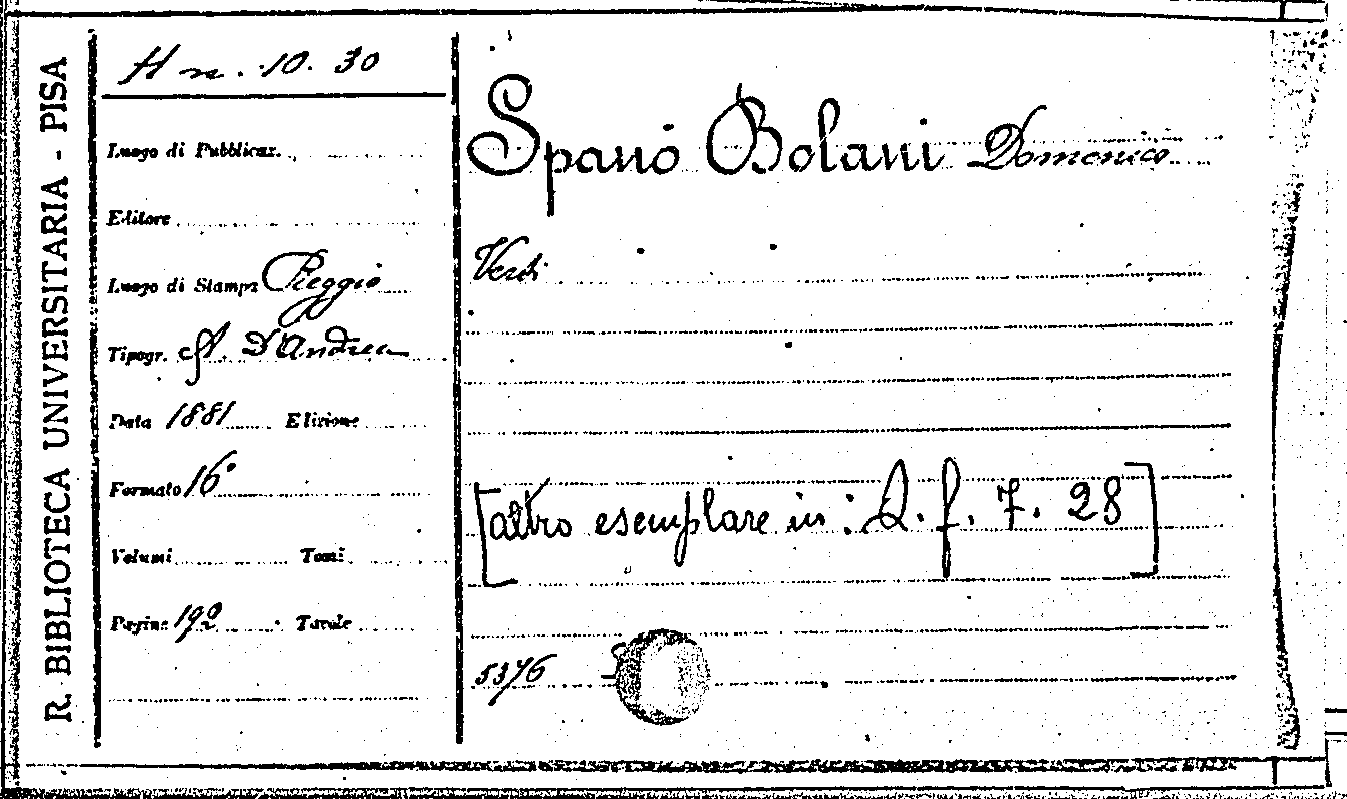 R. BIBLIOTECA UNIVERSITARIA - PISA
H n. 10. 30
Luogo di Pubblicaz.
Editore
Luogo di Stampa Reggio
Tipogr. A. D'Andrea
Data 1881 Edizione
Formato 16°
Volumi Tomi
Pagine 192 Tavole
Spanò Bolani Domenico
Versi
[altro esemplare in: Q. f. 7. 28]
5376